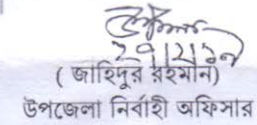 ( জাহিদুর রহমান)
উপজেলা নির্বাহী অফিসার